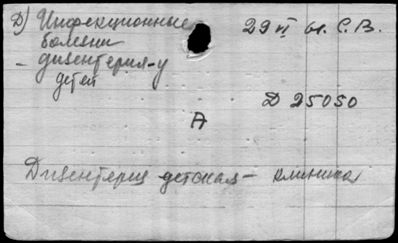 Д) Инфекционные 29 VI 61. С.В.
болезни
– дизентерия-у
детей
Д 25050
А
Дизентерия детская – клиника